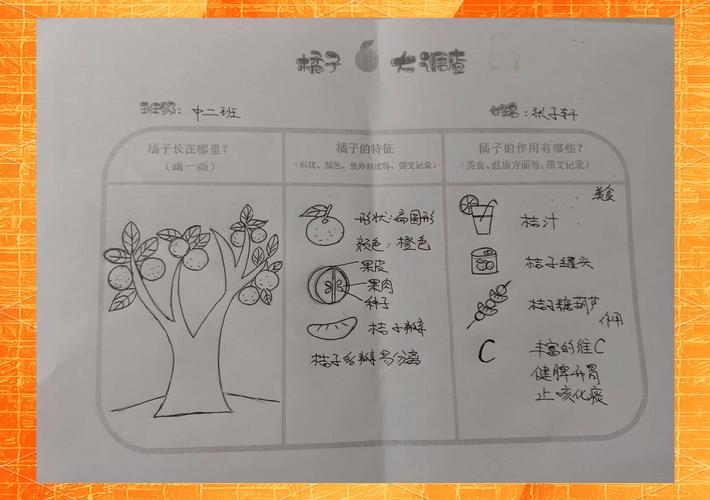 橘子大调查
班级：中二班
姓名：张子轩
橘子长在哪里？
（画一画）
橘子的特征
（形状、颜色、里外对比等，图文记录）
橘子的作用有哪些？
（美食、健康方面等，图文记录）
形状：扁圆形
颜色：橙色
果皮
果肉
种子
桔子瓣
桔子各瓣易分离
美食
桔汁
桔子罐头
桔子糖葫芦
作用
C
丰富的维C
健脾开胃
止咳化痰